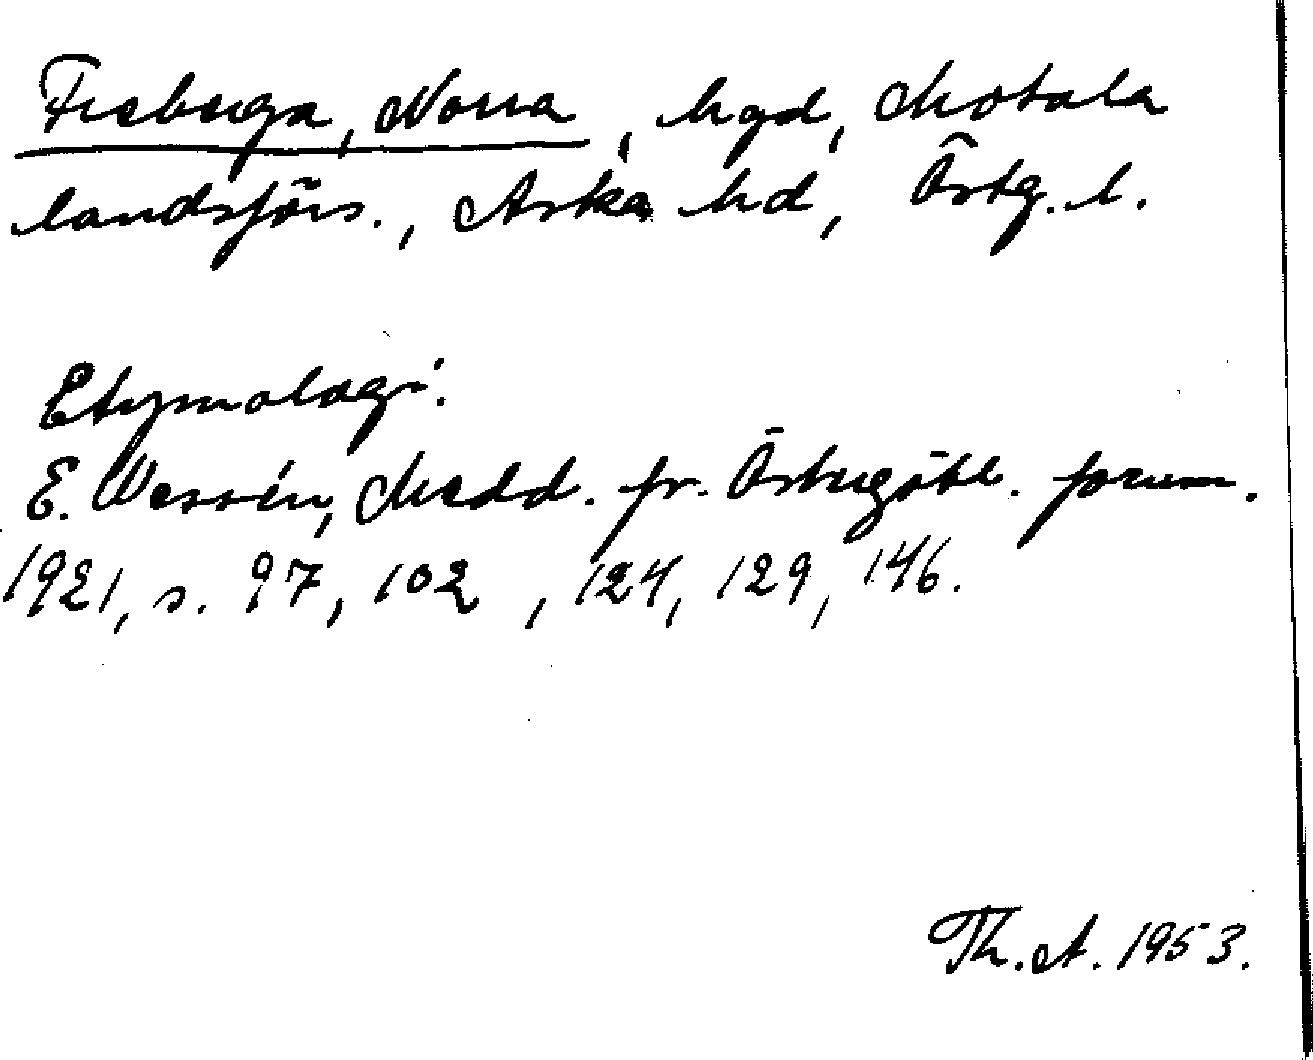 Freberga, Norra, hgd, Motala
landsförs., Aska hd, Östg. l.
Etymologi:
E. Wessén, Medd. fr. Östergötl. fornm.
1921, s. 97, 102 , 124, 129, 146.
Th. A. 1953.